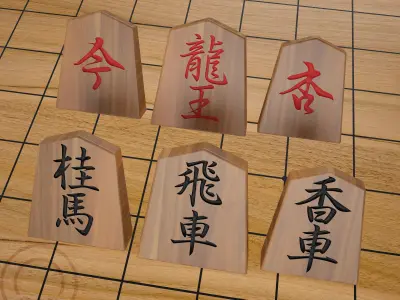 今
龍王
杏
桂馬
飛車
香車